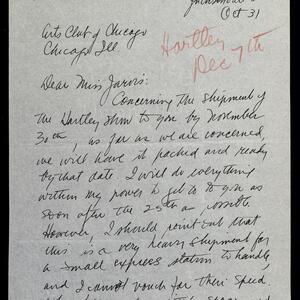 Oct 31
Arts Club of Chicago
Chicago Ill.
Hartley
Dec 7th
Dear Miss Jarvis:
Concerning the shipment of
the Hartley show to you by November
30th, as far as we are concerned,
we will have it packed and ready
by that date. I will do everything
within my power to get it to you as
soon after the 25th as possible
However, I should point out that
this is a very heavy shipment for
a small express station to handle,
and I cannot vouch for their speed